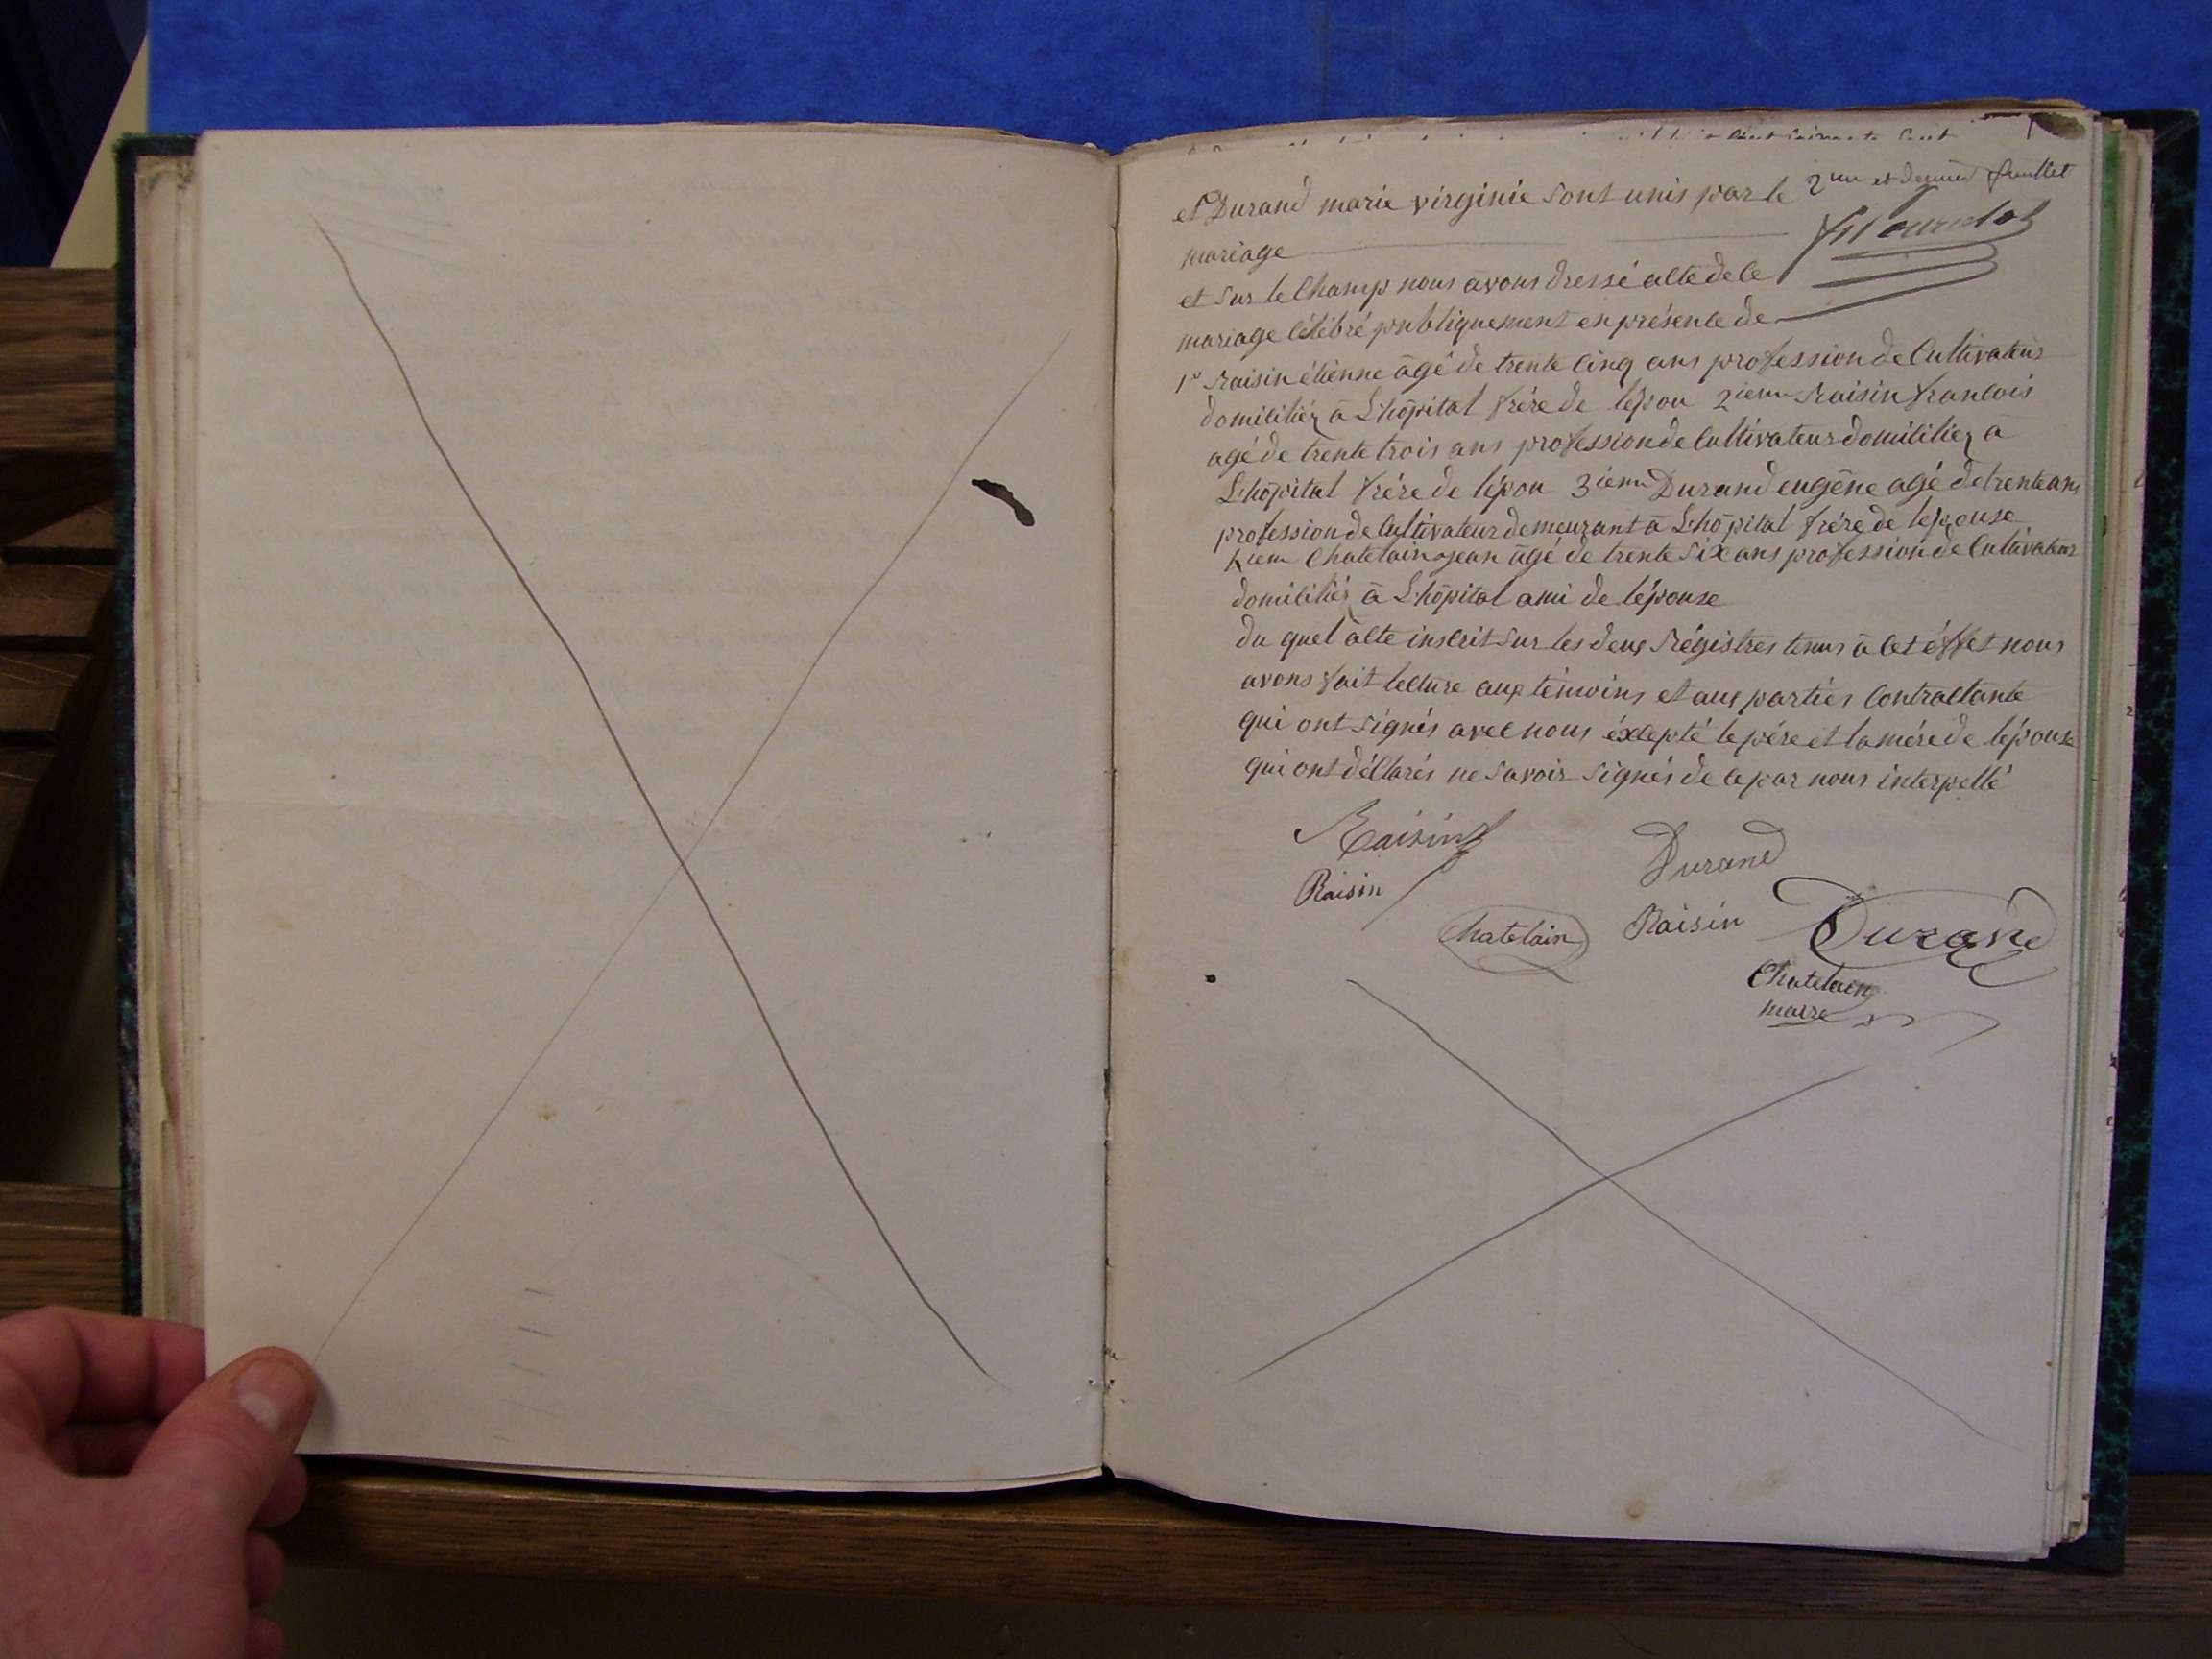 2me et dernier feuillet
et Durand marie virginie sont unis par le
mariage
et sur le champ nous avons dressé acte de ce
mariage célébré publiquement en présence de
1° raisin étienne âgé de trente cinq ans profession de cultivateur
domiciliéz à L'hôpital frére de l'épou 2ieme raisin francois
agé de trente trois ans profession de cultivateur domiciliez à
L'hôpital frére de l'épou 3ieme Durand eugène agé de trente ans
profession de cultivateur demeurant à L'hôpital frére de l'épouse
4ieme Chatelain jean âgé de trente six ans profession de cultivateur
domiciliéz à L'hôpital ami de l'épouse
du quel acte inscrit sur les deux régistres tenus à cet éffet nous
avons fait lecture aux témoins et aux parties contractante
qui ont signés avec nous éxcepté le pére et la mére de l'épouse
qui ont déclarés ne savoir signés de ce par nous interpellé
Raisin
Durand
Raisin
Chatelain
Raisin
Durand
Chatelain
maire